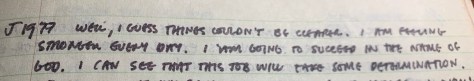 J 1977 WELL, I GUESS THINGS COULDN'T BE CLEARER. I AM FEELING
STRONGER EVERY DAY. I AM GOING TO SUCCEED IN THE NAME OF
GOD. I CAN SEE THAT THIS JOB WILL TAKE SOME DETERMINATION.